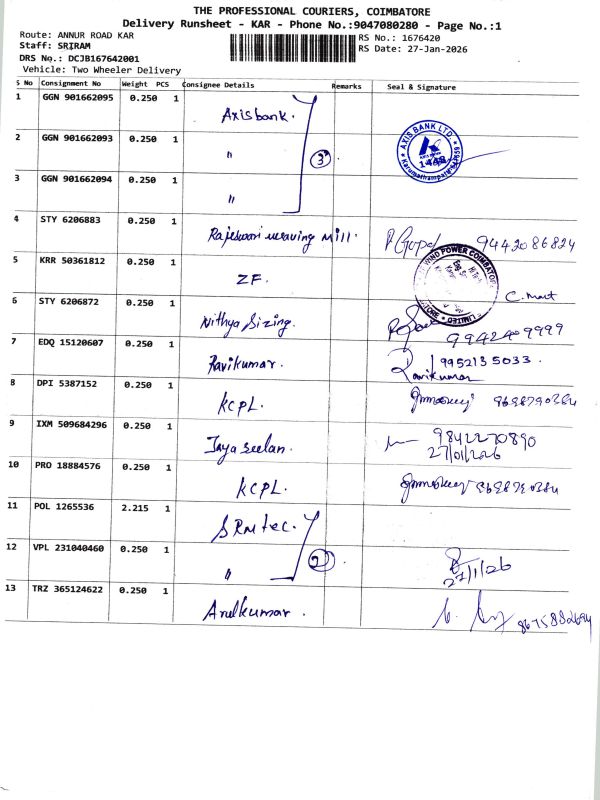 THE PROFESSIONAL COURIERS, COIMBATORE
Delivery Runsheet - KAR - Phone No.:9047080280 - Page No.:1
Route: ANNUR ROAD KAR
RS No.: 1676420
Staff: SRIRAM
RS Date: 27-Jan-2026
DRS No.: DCJB167642001
Vehicle: Two Wheeler Delivery
S No Consignment No Weight PCS Consignee Details Remarks Seal & Signature
1 GGN 901662095 0.250 1 Axisbank.
2 GGN 901662093 0.250 1 " 3 AXIS BANK LTD.
3 GGN 901662094 0.250 1 "
4 STY 6206883 0.250 1 Rajeswari weaving Mill. R Gopal 9442086824
5 KRR 50361812 0.250 1 ZF. WIND POWER COIMBATORE LIMITED
6 STY 6206872 0.250 1 Nithya Sizing. 9942409999
7 EDQ 15120607 0.250 1 Ravikumar. 9952135033. Ravikumar
8 DPI 5387152 0.250 1 KCPL.
9 IXM 509684296 0.250 1 Jayaseelan. 9842270890
27/01/2026
10 PRO 18884576 0.250 1 KCPL.
11 POL 1265536 2.215 1 SRM tec.
12 VPL 231040460 0.250 1 " 2 27/1/26
13 TRZ 365124622 0.250 1 Arulkumar.